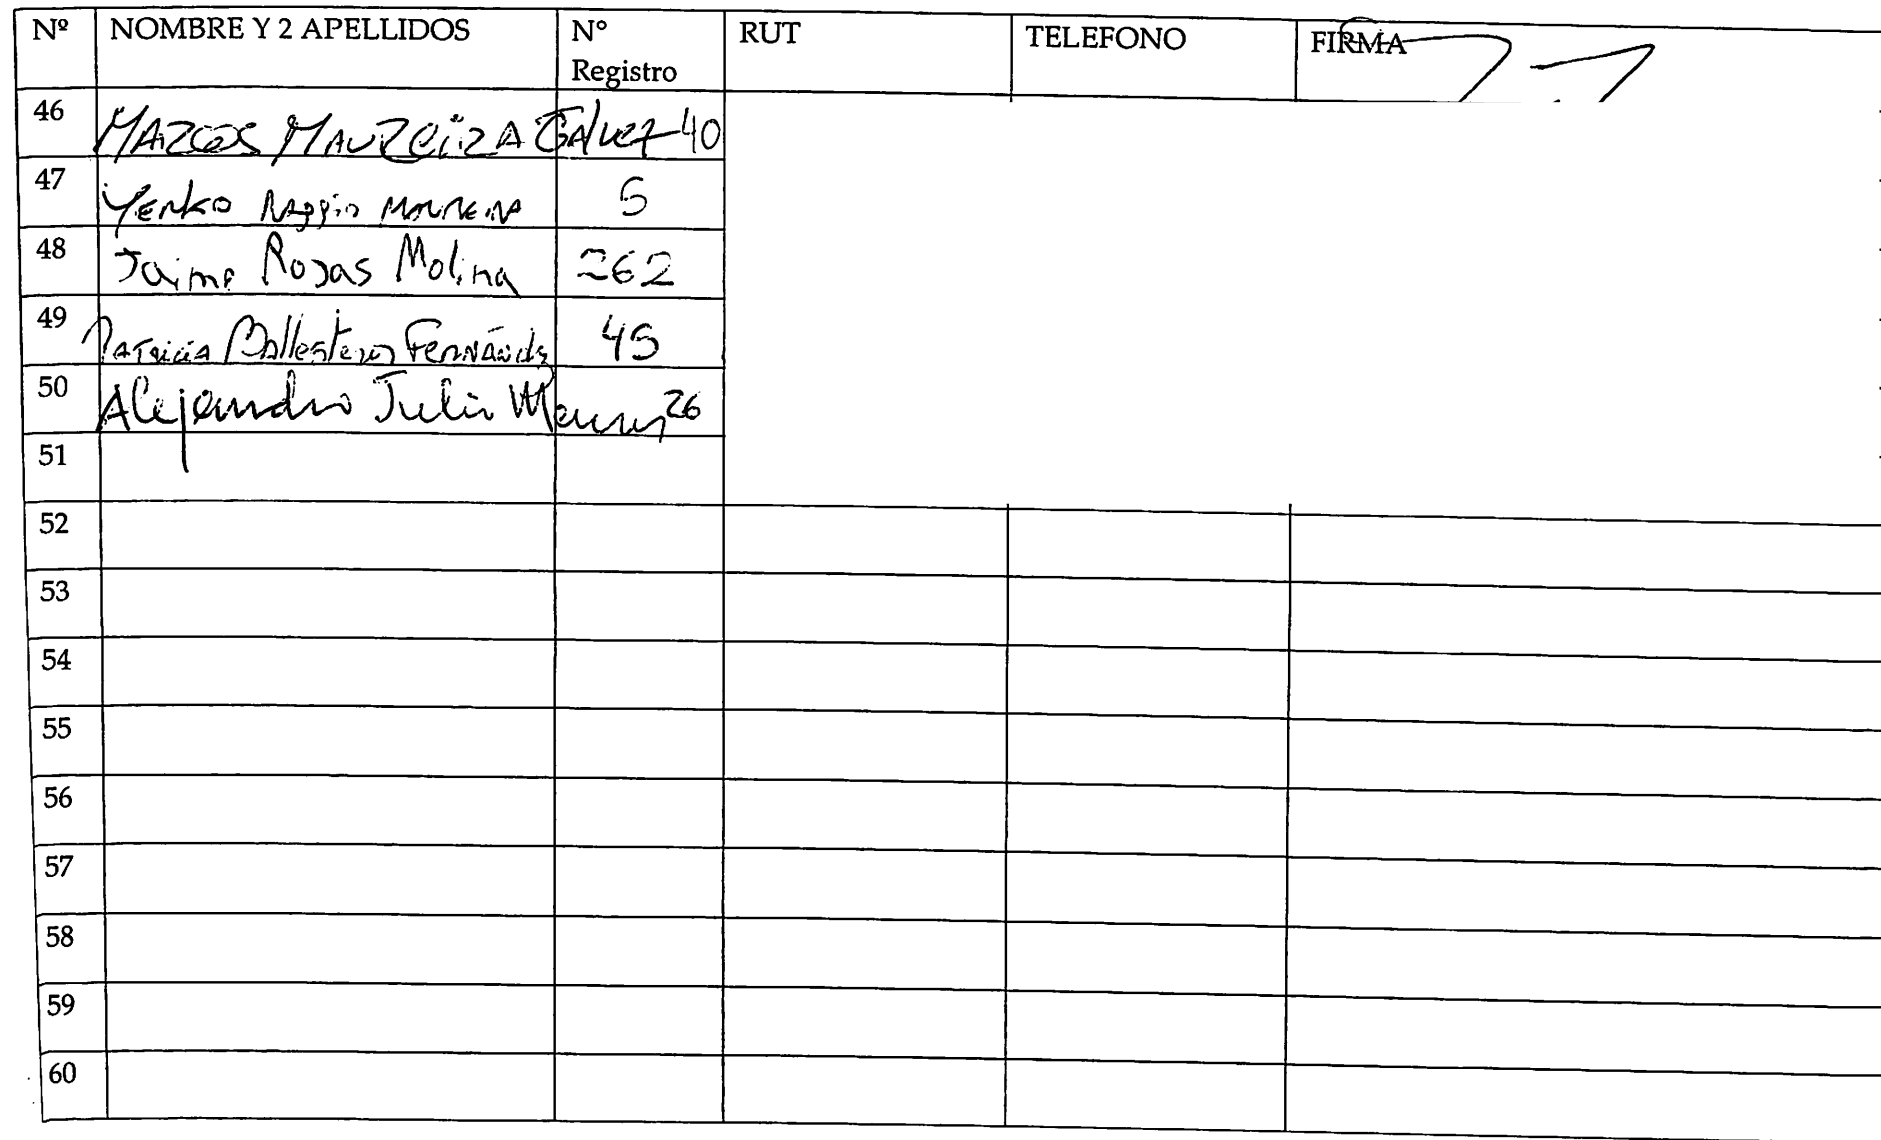 Nº NOMBRE Y 2 APELLIDOS N° Registro RUT TELEFONO FIRMA
46 MARCOS MAUREIRA GALVEZ 40
47 YENKO 5
48 Jaime Rojas Molina 262
49 PATRICIA Ballesteros Fernández 45
50 Alejandro Julio 26
51
52
53
54
55
56
57
58
59
60